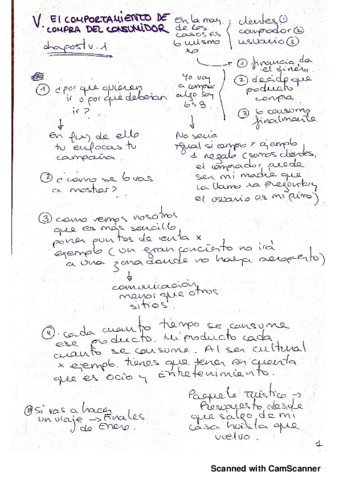 V. El COMPORTAMIENTO DE
COMPRA DEL CONSUMIDOR
en la may.
de los
casos es
lo mismo
xo
clientes ①
comprador ②
usuario ③
① financia, da
el dinero
② decide que
producto
compra
③ lo consume
finalmente
Yo voy
a comprar
algo soy
① ¿por que quieren
ir o por que deberían
ir?
En fun. de ello
tu enfocas tu
campaña.
No sería
igual si compro x ejemplo
1 regalo (somos clientes,
el comprador puede
ser mi madre que
la llamo xa preguntar y
el usuario es mi primo)
② ¿cómo se lo vas
a mostrar?
③ como vemos nosotros
que es más sencillo
poner puntos de venta x
ejemplo (un gran concierto no irá
a una zona donde no haya aeropuerto)
comunicación
menor que otros
sitios.
④ Cada cuanto tiempo se consume
ese producto. Mi producto cada
cuanto se consume. Al ser cultural
x ejemplo, tienes que tener en cuenta
que es ocio y entretenimiento.
Si vas a hacer
un viaje → Finales
de Enero.
Paquete turístico →
Presupuesto desde
que salgo de mi
casa hasta que
vuelvo.
1
Scanned with CamScanner